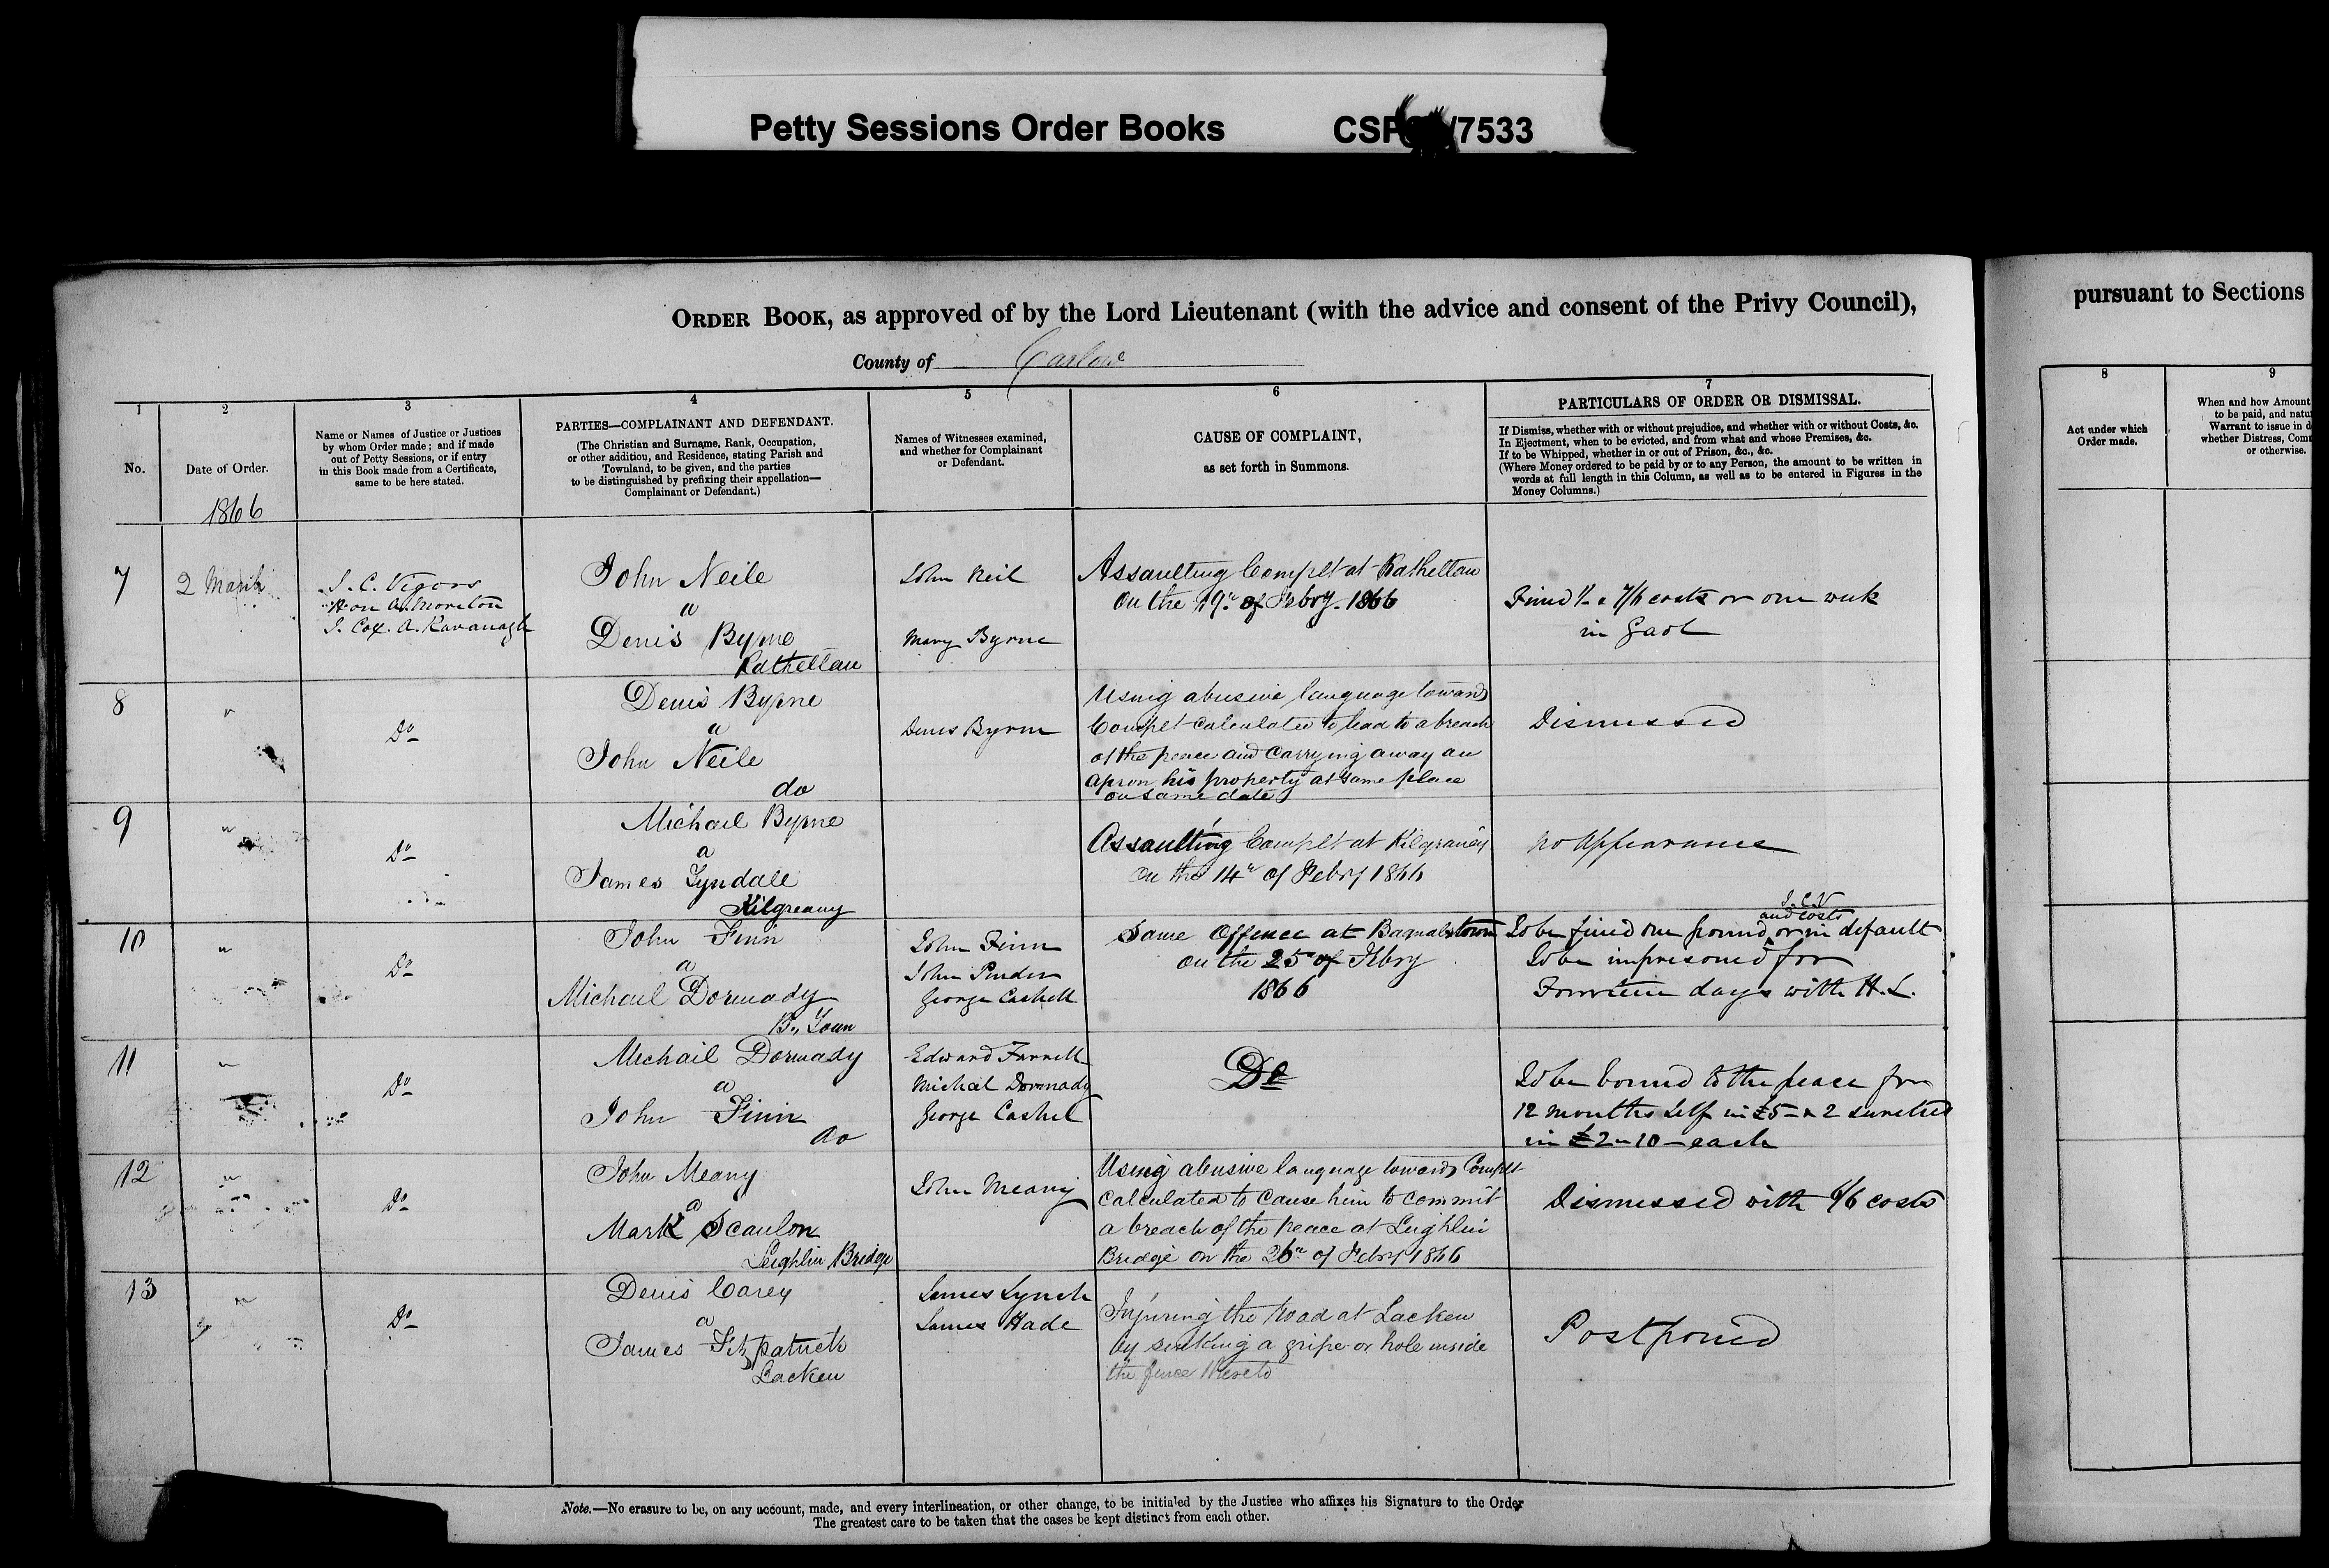 Petty Sessions Order Books CSP /7533
ORDER BOOK, as approved of by the Lord Lieutenant (with the advice and consent of the Privy Council),
County of Carlow
pursuant to Sections
1
2
3
4
5
6
7
8
9
No.
Date of Order.
1866
Name or Names of Justice or Justices
by whom Order made; and if made
out of Petty Sessions, or if entry
in this Book made from a Certificate,
same to be here stated.
PARTIES—COMPLAINANT AND DEFENDANT.
(The Christian and Surname, Rank, Occupation,
or other addition, and Residence, stating Parish and
Townland, to be given, and the parties
to be distinguished by prefixing their appellation—
Complainant or Defendant.)
Names of Witnesses examined,
and whether for Complainant
or Defendant.
CAUSE OF COMPLAINT,
as set forth in Summons.
PARTICULARS OF ORDER OR DISMISSAL.
If Dismiss, whether with or without prejudice, and whether with or without Costs, &c.
In Ejectment, when to be evicted, and from what and whose Premises, &c.
If to be Whipped, whether in or out of Prison, &c., &c.
(Where Money ordered to be paid by or to any Person, the amount to be written in
words at full length in this Column, as well as to be entered in Figures in the
Money Columns.)
Act under which
Order made.
When and how Amount
to be paid, and natu
Warrant to issue in d
whether Distress, Com
or otherwise.
7
2 March
J. C. Vigors
Hon A. Moreton
J. Cox. A. Kavanagh
John Neile
a
Denis Byrne
Rathellan
John Neil
Mary Byrne
Assaulting Complt at Rathellan
on the 19th of Febry. 1866
Fined 1/- & 7/6 costs or one week
in Gaol
8
"
Do
Denis Byrne
a
John Neile
do
Denis Byrne
Using abusive language towards
Complt calculated to lead to a breach
of the peace and carrying away an
apron his property at same place
on same date
Dismissed
9
"
Do
Michael Byrne
a
James Tyndall
Kilgreany
Assaulting Complt at Kilgraney
on the 14th of Febry 1866
no appearance
10
"
Do
John Finn
a
Michael Dormady
B., Town
John Finn
John Pender
George Cashell
Same Offence at Bagnalstown
on the 25th of Febry
1866
J. C. V
and costs
To be fined one pound or in default
to be imprisoned for
Fourteen days with H. L.
11
"
Do
Michail Dormady
a
John Finn
do
Edward Farrell
Michael Dormady
George Cashel
Do
To be bound to the peace for
12 months self in £5 - & 2 sureties
in £2 - 10 - each
12
"
Do
John Meany
a
Mark Scanlon
Leighlin Bridge
John Meany
Using abusive language towards Complt
calculated to cause him to commit
a breach of the peace at Leighlin
Bridge on the 26th of Febry 1866
Dismissed with /6 costs
13
"
Do
Denis Carey
a
James Fitzpatrick
Lacken
James Lynch
James Hade
Injuring the road at Lacken
by sinking a gripe or hole inside
the fence thereto
Postponed
Note.—No erasure to be, on any account, made, and every interlineation, or other change, to be initialed by the Justice who affixes his Signature to the Order
The greatest care to be taken that the cases be kept distinct from each other.